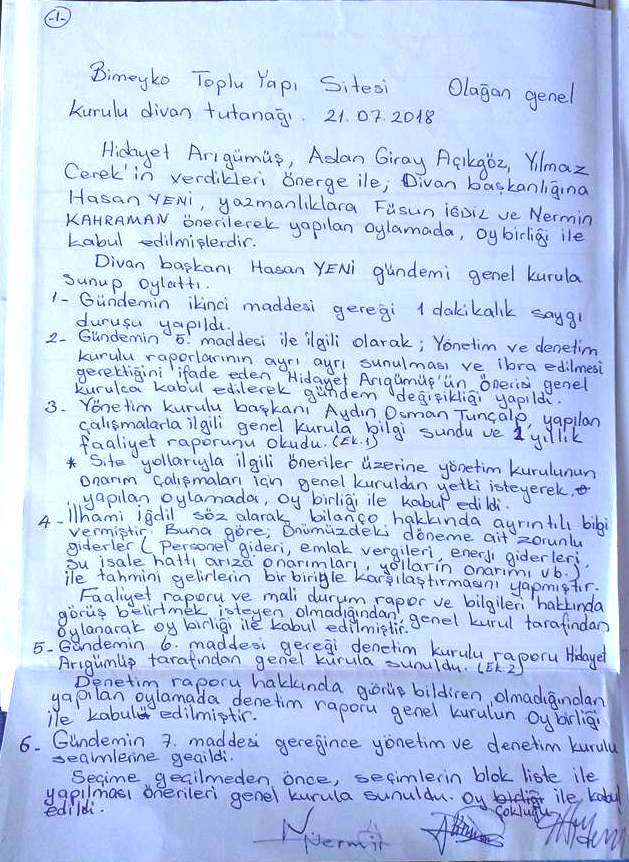 -1-
Bimeyko Toplu Yapı Sitesi Olağan genel
kurulu divan tutanağı. 21.07.2018
Hidayet Arıgümüş, Aslan Giray Açıkgöz, Yılmaz
Cerek'in verdikleri önerge ile; Divan başkanlığına
Hasan YENİ, yazmanlıklara Füsun İĞDİL ve Nermin
KAHRAMAN önerilerek yapılan oylamada, oy birliği ile
kabul edilmişlerdir.
Divan başkanı Hasan YENİ gündemi genel kurula
sunup oylattı.
1- Gündemin ikinci maddesi gereği 1 dakikalık saygı
duruşu yapıldı.
2- Gündemin 5. maddesi ile ilgili olarak; Yönetim ve denetim
kurulu raporlarının ayrı ayrı sunulması ve ibra edilmesi
gerektiğini ifade eden Hidayet Arıgümüş'ün önerisi genel
kurulca kabul edilerek gündem değişikliği yapıldı.
3- Yönetim kurulu başkanı Aydın Osman Tunçalp, yapılan
çalışmalarla ilgili genel kurula bilgi sundu ve 1 yıllık
faaliyet raporunu okudu. (Ek.1)
* Site yollarıyla ilgili öneriler üzerine yönetim kurulunun
onarım çalışmaları için genel kuruldan yetki isteyerek,
yapılan oylamada, oy birliği ile kabul edildi.
4- İlhami iğdil söz alarak, bilanço hakkında ayrıntılı bilgi
vermiştir. Buna göre; Önümüzdeki döneme ait zorunlu
giderler (Personel gideri, emlak vergileri, enerji giderleri,
su isale hattı arıza onarımları, yolların onarımı vb.)
ile tahmini gelirlerin birbiriyle karşılaştırmasını yapmıştır.
Faaliyet raporu ve mali durum rapor ve bilgileri hakkında
görüş belirtmek isteyen olmadığından, genel kurul tarafından
oylanarak oy birliği ile kabul edilmiştir.
5- Gündemin 6. maddesi gereği denetim kurulu raporu Hidayet
Arıgümüş tarafından genel kurula sunuldu. (Ek.2)
Denetim raporu hakkında görüş bildiren olmadığından
yapılan oylamada denetim raporu genel kurulun oy birliği
ile kabul edilmiştir.
6- Gündemin 7. maddesi gereğince yönetim ve denetim kurulu
seçimlerine geçildi.
Seçime geçilmeden önce, seçimlerin blok liste ile
yapılması önerileri genel kurula sunuldu. Oy birliği ile kabul
çokluğu
edildi.
Nermin